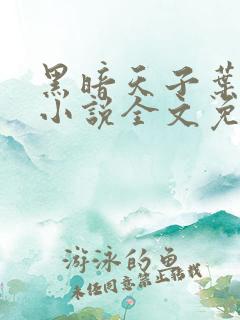 黑暗天子葉
小說全文免
游泳的魚
未经同意禁止转载